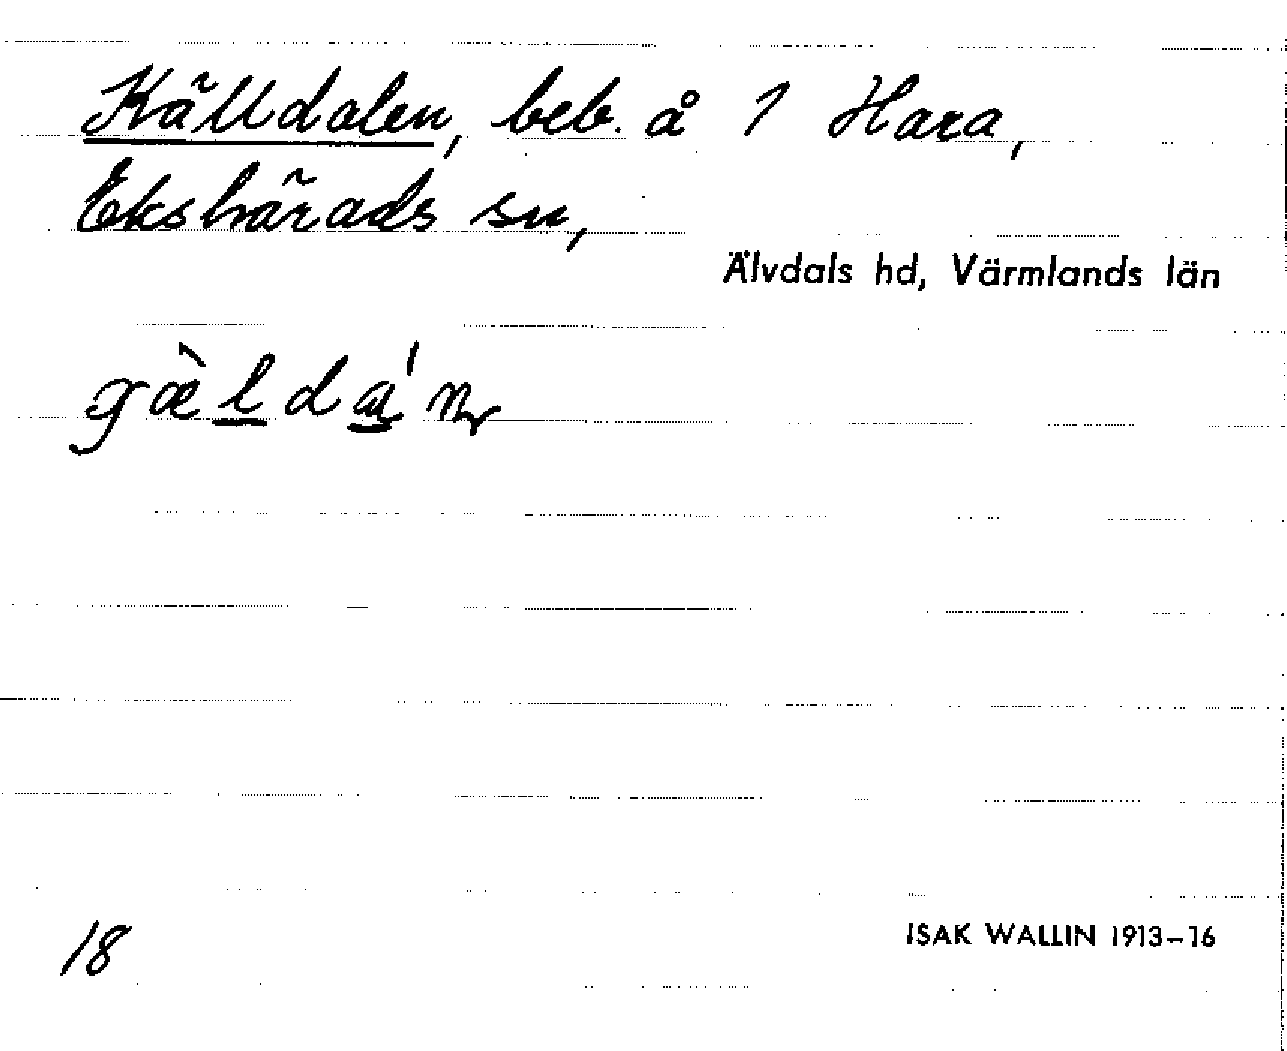 Källdalen, beb. å 1 Hara,
Ekshärads sn,
Älvdals hd, Värmlands län
gæ̀lda̍n
18
ISAK WALLIN 1913–16